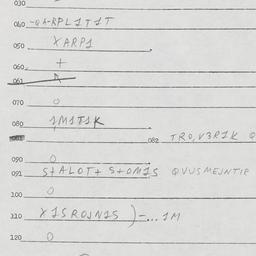 030
040 -QA-RPL1T1T
050 XARP1
060 +
061
070 O
080 1M1T1K
082 TRO,V3R1K Q
090 O
091 S+ALOT+ S+OM1S QVUSMEJNTIF
100 O
110 X1SROJN15)-...1M
120 O